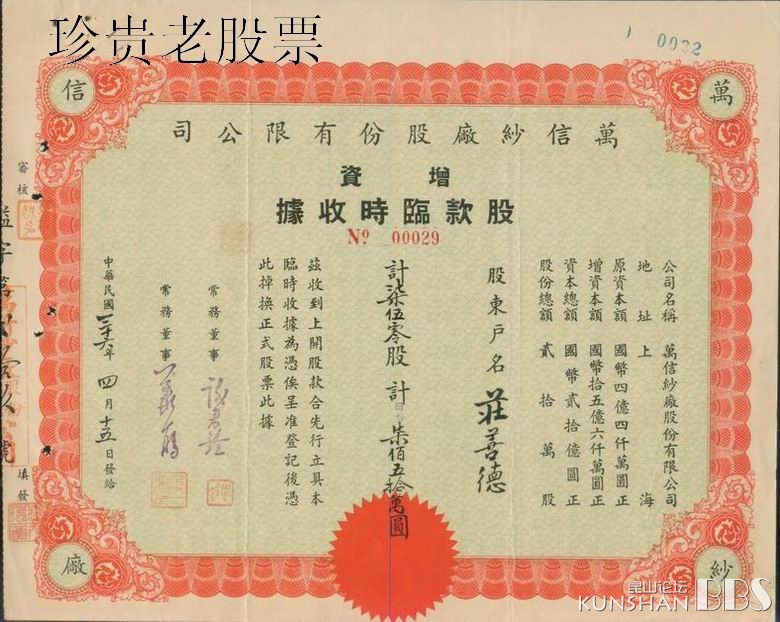 珍贵老股票
0022
萬
信
紗
廠
萬信紗廠股份有限公司
增資
股款臨時收據
No 00029
公司名稱 萬信紗廠股份有限公司
地址 上海
原資本額 國幣四億四仟萬圓正
增資本額 國幣拾五億六仟萬圓正
資本總額 國幣貳拾億圓正
股份總額 貳拾萬股
股東戶名 莊善德
計柒伍零股 計國幣柒佰五拾萬圓
茲收到上開股款合先行立具本
臨時收據為憑俟呈准登記後憑
此掉換正式股票此據
常務董事
常務董事
中華民國三十六年四月十五日發給
審核
填發
昆山论坛
KUNSHAN BBS